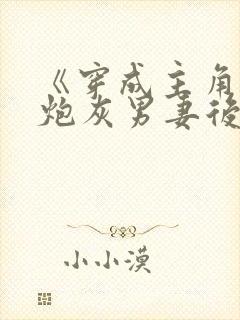 《穿成主角
炮灰男妻後
小小漠